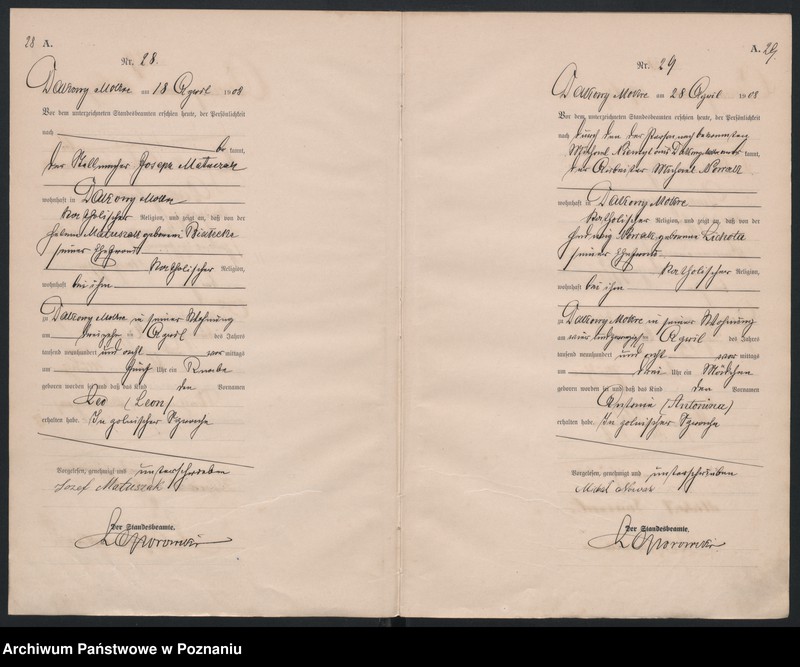 28 A.
Nr. 28.
Dakowy Mokre am 18 April 1908
Vor dem unterzeichneten Standesbeamten erschien heute, der Persönlichkeit
nach be kannt,
der Stellmacher Joseph Matuszak
wohnhaft in Dakowy Mokre
katholischer Religion, und zeigt an, daß von der
Helena Matuszak geborenen
seiner Ehefrau
katholischer Religion,
wohnhaft bei ihm
zu Dakowy Mokre in seiner Wohnung
am dreizehn ten April des Jahres
tausend neunhundert und acht vor mittags
um fünf Uhr ein Knabe
geboren worden sei und daß das Kind den Vornamen
Leo (Leon)
erhalten habe. In polnischer Sprache
Vorgelesen, genehmigt und unterschrieben
Józef Matuszak
Der Standesbeamte.
A. 29.
Nr. 29
Dakowy Mokre am 28 April 1908
Vor dem unterzeichneten Standesbeamten erschien heute, der Persönlichkeit
nach durch den der Person nach bekannten
Michael aus Dakowy mokre kannt,
der Arbeiter Michael Nowak
wohnhaft in Dakowy Mokre
katholischer Religion, und zeigt an, daß von der
Hedwig Nowak geborenen Lichota
seiner Ehefrau
katholischer Religion,
wohnhaft bei ihm
zu Dakowy Mokre in seiner Wohnung
am vier und zwanzigsten April des Jahres
tausend neunhundert und acht vor mittags
um drei Uhr ein Mädchen
geboren worden sei und daß das Kind den Vornamen
Antonie (Antonina)
erhalten habe. In polnischer Sprache
Vorgelesen, genehmigt und unterschrieben
Der Standesbeamte.
Archiwum Państwowe w Poznaniu